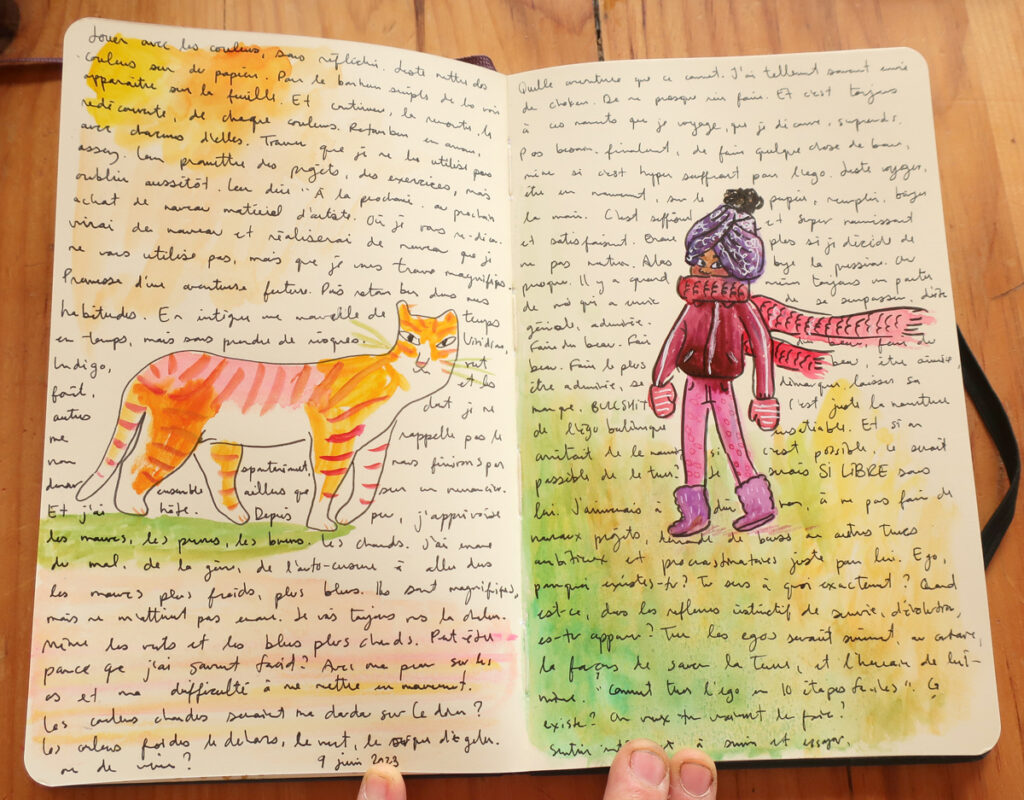 Jouer avec les couleurs, sans réfléchir. Juste mettre des
couleurs sur du papier. Pour le bonheur simple de les voir
apparaître sur la feuille. Et continuer, la rencontre, la
redécouverte, de chaque couleur. Retomber en amour,
avec chacune d'elles. Trouver que je ne les utilise pas
assez. Leur promettre des projets, des exercices, mais
oublier aussitôt. Leur dire "À la prochaine. au prochain
achat de nouveau matériel d'artiste. Où je vous re-
de nouveau et réaliserai de nouveau que je
ne vous utilise pas, mais que je vous trouve magnifiques.
Promesse d'une aventure future. Puis retomber dans nos
habitudes. En intégrer une nouvelle de temps
en temps, mais sans prendre de risques. Viridian,
Indigo, vert
et les
autres dont je ne
me rappelle pas le
nom mais finirons par
spontanément, ensemble ailleurs que sur un nuancier.
Et j'ai hâte. Depuis peu, j'apprivoise
les mauves, les prunes, les bruns. Les chauds. J'ai encore
du mal, de la gêne, de l'auto-censure à aller dans
les mauves plus froids, plus bleus. Ils sont magnifiques,
mais ne m'attirent pas encore. Je vais toujours vers la chaleur.
Même les verts et les bleus plus chauds. Peut-être
parce que j'ai souvent froid? Avec ma peau sur les
os et ma difficulté à me mettre en mouvement.
Les couleurs chaudes seraient me dorer sur le dos?
Les couleurs froides le dehors, le vent, le risque de geler.
ou de vivre?
9 juin 2023
Quelle aventure que ce carnet. J'ai tellement souvent envie
de De ne presque rien faire. Et c'est toujours
à ces moments que je voyage, que je découvre, surprends.
Pas besoin, finalement, de faire quelque chose de beau,
même si c'est hyper souffrant pour l'ego. Juste voyager,
être en mouvement, sur le papier, remplir, bouger
la main. C'est suffisant et super nourrissant
et satisfaisant. Encore plus si je décide de
ne pas montrer. Alors bye la pression. Ou
presque. Il y a quand même toujours une partie
de moi qui a envie de se surpasser, d'être
géniale, admirée.
Faire du beau. Faire du beau, faire du
beau. Faire le plus beau, être aimée,
être admirée, se démarquer, laisser sa
marque. BULLSHIT. C'est juste la nourriture
de l'ego boulimique insatiable. Et si on
arrêtait de le nourrir, si c'est possible, ce serait
possible de le tuer? Je serais SI LIBRE sans
lui. J'arriverais à à ne pas faire de
nouveaux projets, autres trucs
ambitieux et procrastinatoires juste pour lui. Ego,
pourquoi existes-tu? Tu sers à quoi exactement? Quand
est-ce, dans les réflexes instinctif de survie, d'évolution,
es-tu apparu? Tuer les egos serait sûrement, au contraire,
la façon de sauver la Terre, et l'humain de lui-
même. "Comment tuer l'ego en 10 étapes faciles". Ça
existe? On veux-tu vraiment le faire?
à et essayer.